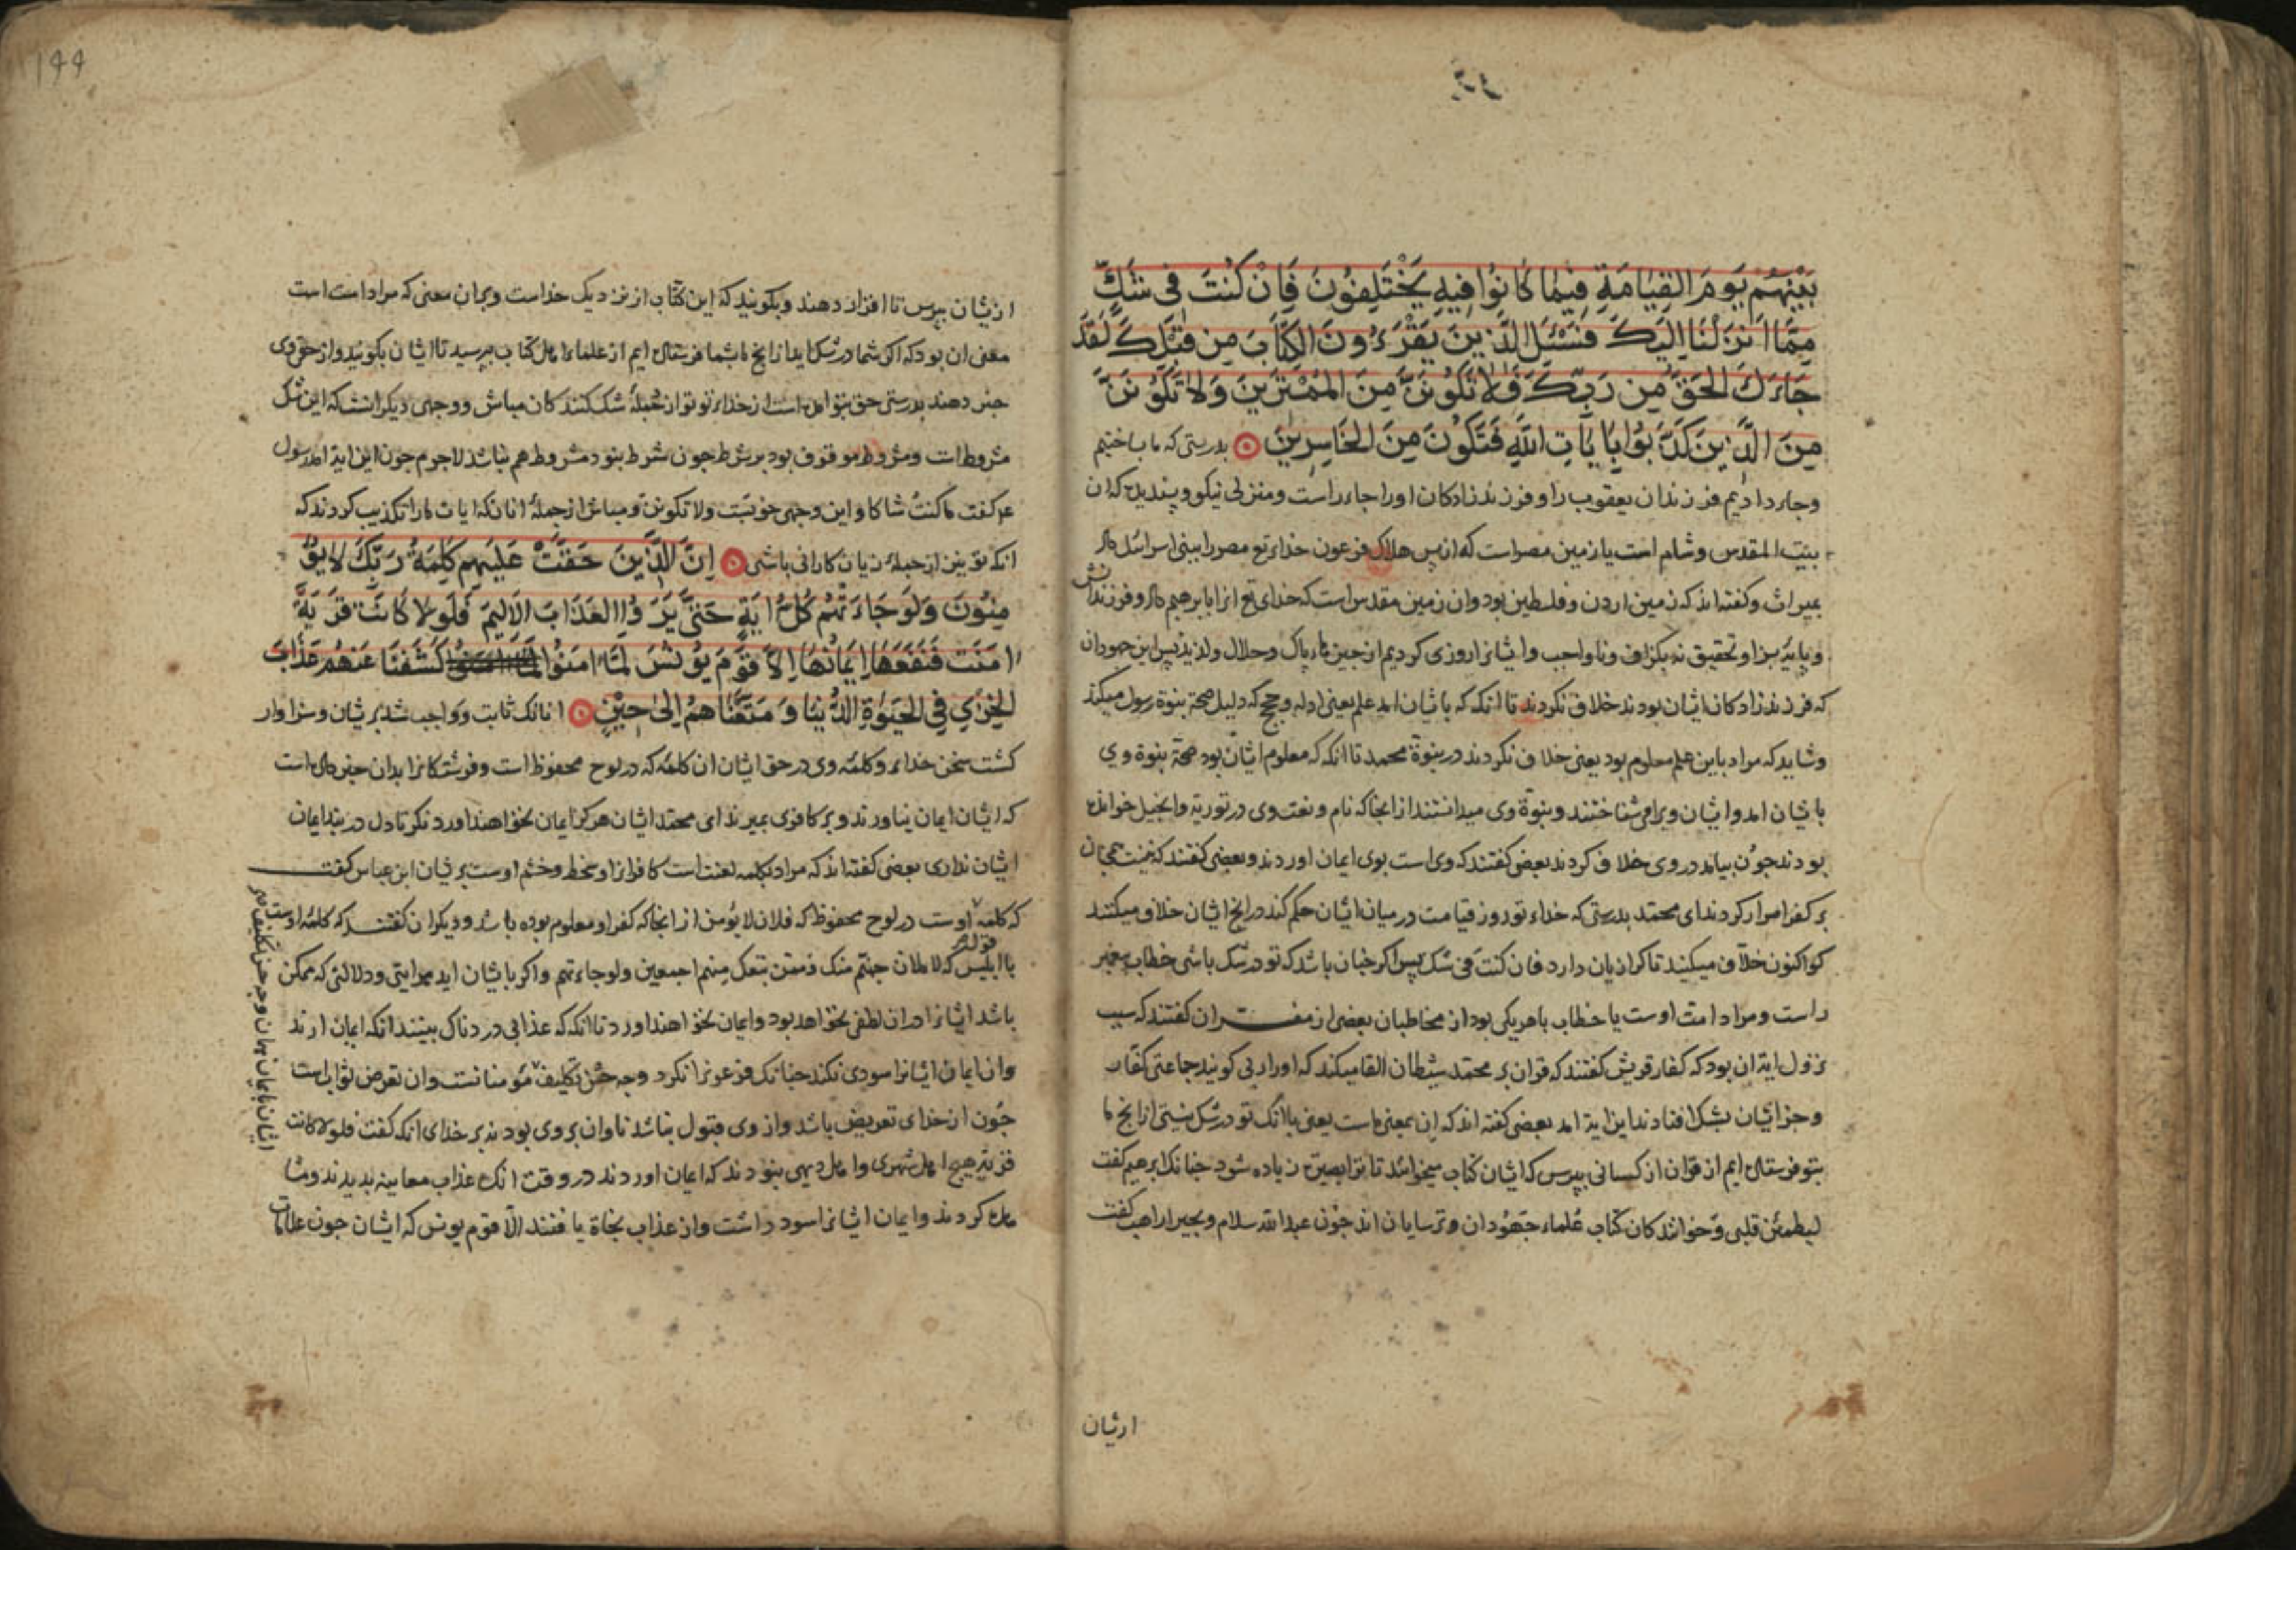 بَيْنَهُمْ يَوْمَ الْقِيَامَةِ فِيمَا كَانُوا فِيهِ يَخْتَلِفُونَ فَاِنْ كُنْتَ فِى شَكٍّ
مِمَّا اَنْزَلْنَا اِلَيْكَ فَسْئَلِ الَّذِينَ يَقْرَءُونَ الْكِتَابَ مِن قَبْلِكَ لَقَدْ
جَاءَكَ الْحَقُّ مِن رَبِّكَ فَلَا تَكُونَنَّ مِنَ الْمُمْتَرِينَ وَلَا تَكُونَنَّ
مِنَ الَّذِينَ كَذَّبُوا بِاٰيَاتِ اللّٰهِ فَتَكُونَ مِنَ الْخَاسِرِينَ بدرستى كه ما بساختيم
وجاء داديم فرزندان يعقوب را وفرزند زادكان اورا جاء راست ومنزلى نيكو وپسنديده كه ان
بيت المقدس وشام است يا زمين مصراست كه از پس هلاك فرعون خداء تع مصررا ببنى اسرائيل داد
بميراث وكفته اند كه زمين اردن وفلسطين بود وان زمين مقدس است كه خداى تع انرا بابرهيم داد وفرزندانش
و تحقيق نه بكزاف ونا واجب وايشانرا روزى كرديم از چيزهاء پاك وحلال ولذيذ پس اين جهودان
كه فرزند زادكان ايشان بودند خلاف نكردند تا انكه كه بايشان امد علم يعنى ادله وحجج كه دليل صحة نبوة رسول ميكند
وشايد كه مراد باين علم معلوم بود يعنى خلاف نكردند در نبوة محمد تا انكه كه معلوم ايشان بود صحة نبوة وى
بايشان امد وايشان ويرا مى شناختند ونبوة وى ميدانستند از انجا كه نام ونعت وى در تورية وانجيل خوانده
بودند چون بيامد در وى خلاف كردند بعضى كفتند كه وى است بوى ايمان اوردند وبعضى كفتند كه نيست همچنان
بر كفر اصرار كردند اى محمد بدرستى كه خداء تو روز قيامت در ميان ايشان حكم كند در انچ ايشان خلاف ميكنند
كو اكنون خلاف ميكنيد تا كرا زيان دارد فان كنت فى شك پس اكر چنان باشد كه تو در شك باشى خطاب پيغمبر
راست ومراد امت اوست يا خطاب با هريكى بود از مخاطبان بعضى از مفسران كفتند كه سبب
نزول اية ان بود كه كفار قريش كفتند كه قران بر محمد شيطان القا ميكند كه اورا رى كويند جماعتى كفار
وجز ايشان بشك افتادند اين اية امد بعضى كفته اند كه ان بمعنى ماست يعنى با انك تو در شك نيستى از انچ ما
بتو فرستاده ايم از قران از كسانى بپرس كه ايشان كتاب ميخوانند تا ترا بصيرة زياده شود چنانك ابرهيم كفت
ليطمئن قلبى وخوانندكان كتاب علماء جهودان وترسايان اند چون عبد الله سلام وبحيرا راهب كفت
ازيشان
١٩٩
ازيشان بپرس تا اقرار دهند وبكويند كه اين كتاب از نزديك خداست وبدان معنى كه مراد امت است
معنى ان بود كه اكر شما در شك ايد از انچ ما بشما فرستاده ايم از علماء اهل كتاب بپرسيد تا ايشان بكويند واز حق وى
خبر دهند بدرستى حق بتو امده است از خداء تو تو از جملهٔ شك كنندكان مباش ووجهى ديكر انست كه اين شك
مشروط است ومشروط موقوف بود بر شرط چون شرط نبود مشروط هم نباشد لاجرم چون اين اية امد رسول
عم كفت ما كنت شاكا واين وجهى خوبست ولا تكونن ومباش از جملهٔ انانكه ايات مارا تكذيب كردند كه
انكه تو نيز از جملهٔ زيان كاران باشى اِنَّ الَّذِينَ حَقَّتْ عَلَيْهِمْ كَلِمَةُ رَبِّكَ لَا يُؤْ
مِنُونَ وَلَوْ جَاءَتْهُمْ كُلُّ اٰيَةٍ حَتّٰى يَرَوُا الْعَذَابَ الْاَلِيمَ فَلَوْلَا كَانَتْ قَرْيَةٌ
اٰمَنَتْ فَنَفَعَهَا اِيمَانُهَا اِلَّا قَوْمَ يُونُسَ لَمَّا اٰمَنُوا كَشَفْنَا عَنْهُمْ عَذَابَ
الْخِزْىِ فِى الْحَيٰوةِ الدُّنْيَا وَمَتَّعْنَاهُمْ اِلٰى حِينٍ انانك ثابت وواجب شد بريشان وسزاوار
كشت سخن خداء وكلمهٔ وى در حق ايشان ان كلمهٔ كه در لوح محفوظ است وفرشتكانرا بدان خبر داده است
كه ايشان ايمان نياورند وبر كافرى بميرند اى محمد ايشان هركز ايمان نخواهند اورد نكر تا دل در بند ايمان
ايشان ندارى بعضى كفته اند كه مراد بكلمه لعنت است كافرانرا وسخط وخشم اوست بريشان ابن عباس كفت
كه كلمهٔ اوست در لوح محفوظ كه فلان لا يؤمن از انجا كه كفر او معلوم بوده باشد وديكران كفتند كه كلمهٔ اوست
قوله
با ابليس كه لاملان جهنم منك وممن تبعك منهم اجمعين ولو جاءتهم واكر بايشان ايد هر ايتى ودلالتى كه ممكن
باشد ايشانرا در ان لطفى نخواهد بود وايمان نخواهند اورد تا انكه كه عذابى دردناك بينند انكه ايمان ارند
وان ايمان ايشانرا سودى نكند چنانك فرعونرا نكرد وجه حسن تكليف مؤمنانست وان تعرض ثواب است
چون از خداى تعريض باشد واز وى قبول نباشد تاوان بر وى بود نه بر خداى انكه كفت فلولا كانت
قرية هيچ اهل شهرى واهل ديهى نبودند كه ايمان اوردند در وقت انك عذاب معاينه بديدند ومشا
هده كردند وايمان ايشانرا سود داشت واز عذاب نجاة يافتند الا قوم يونس كه ايشان چون علامات